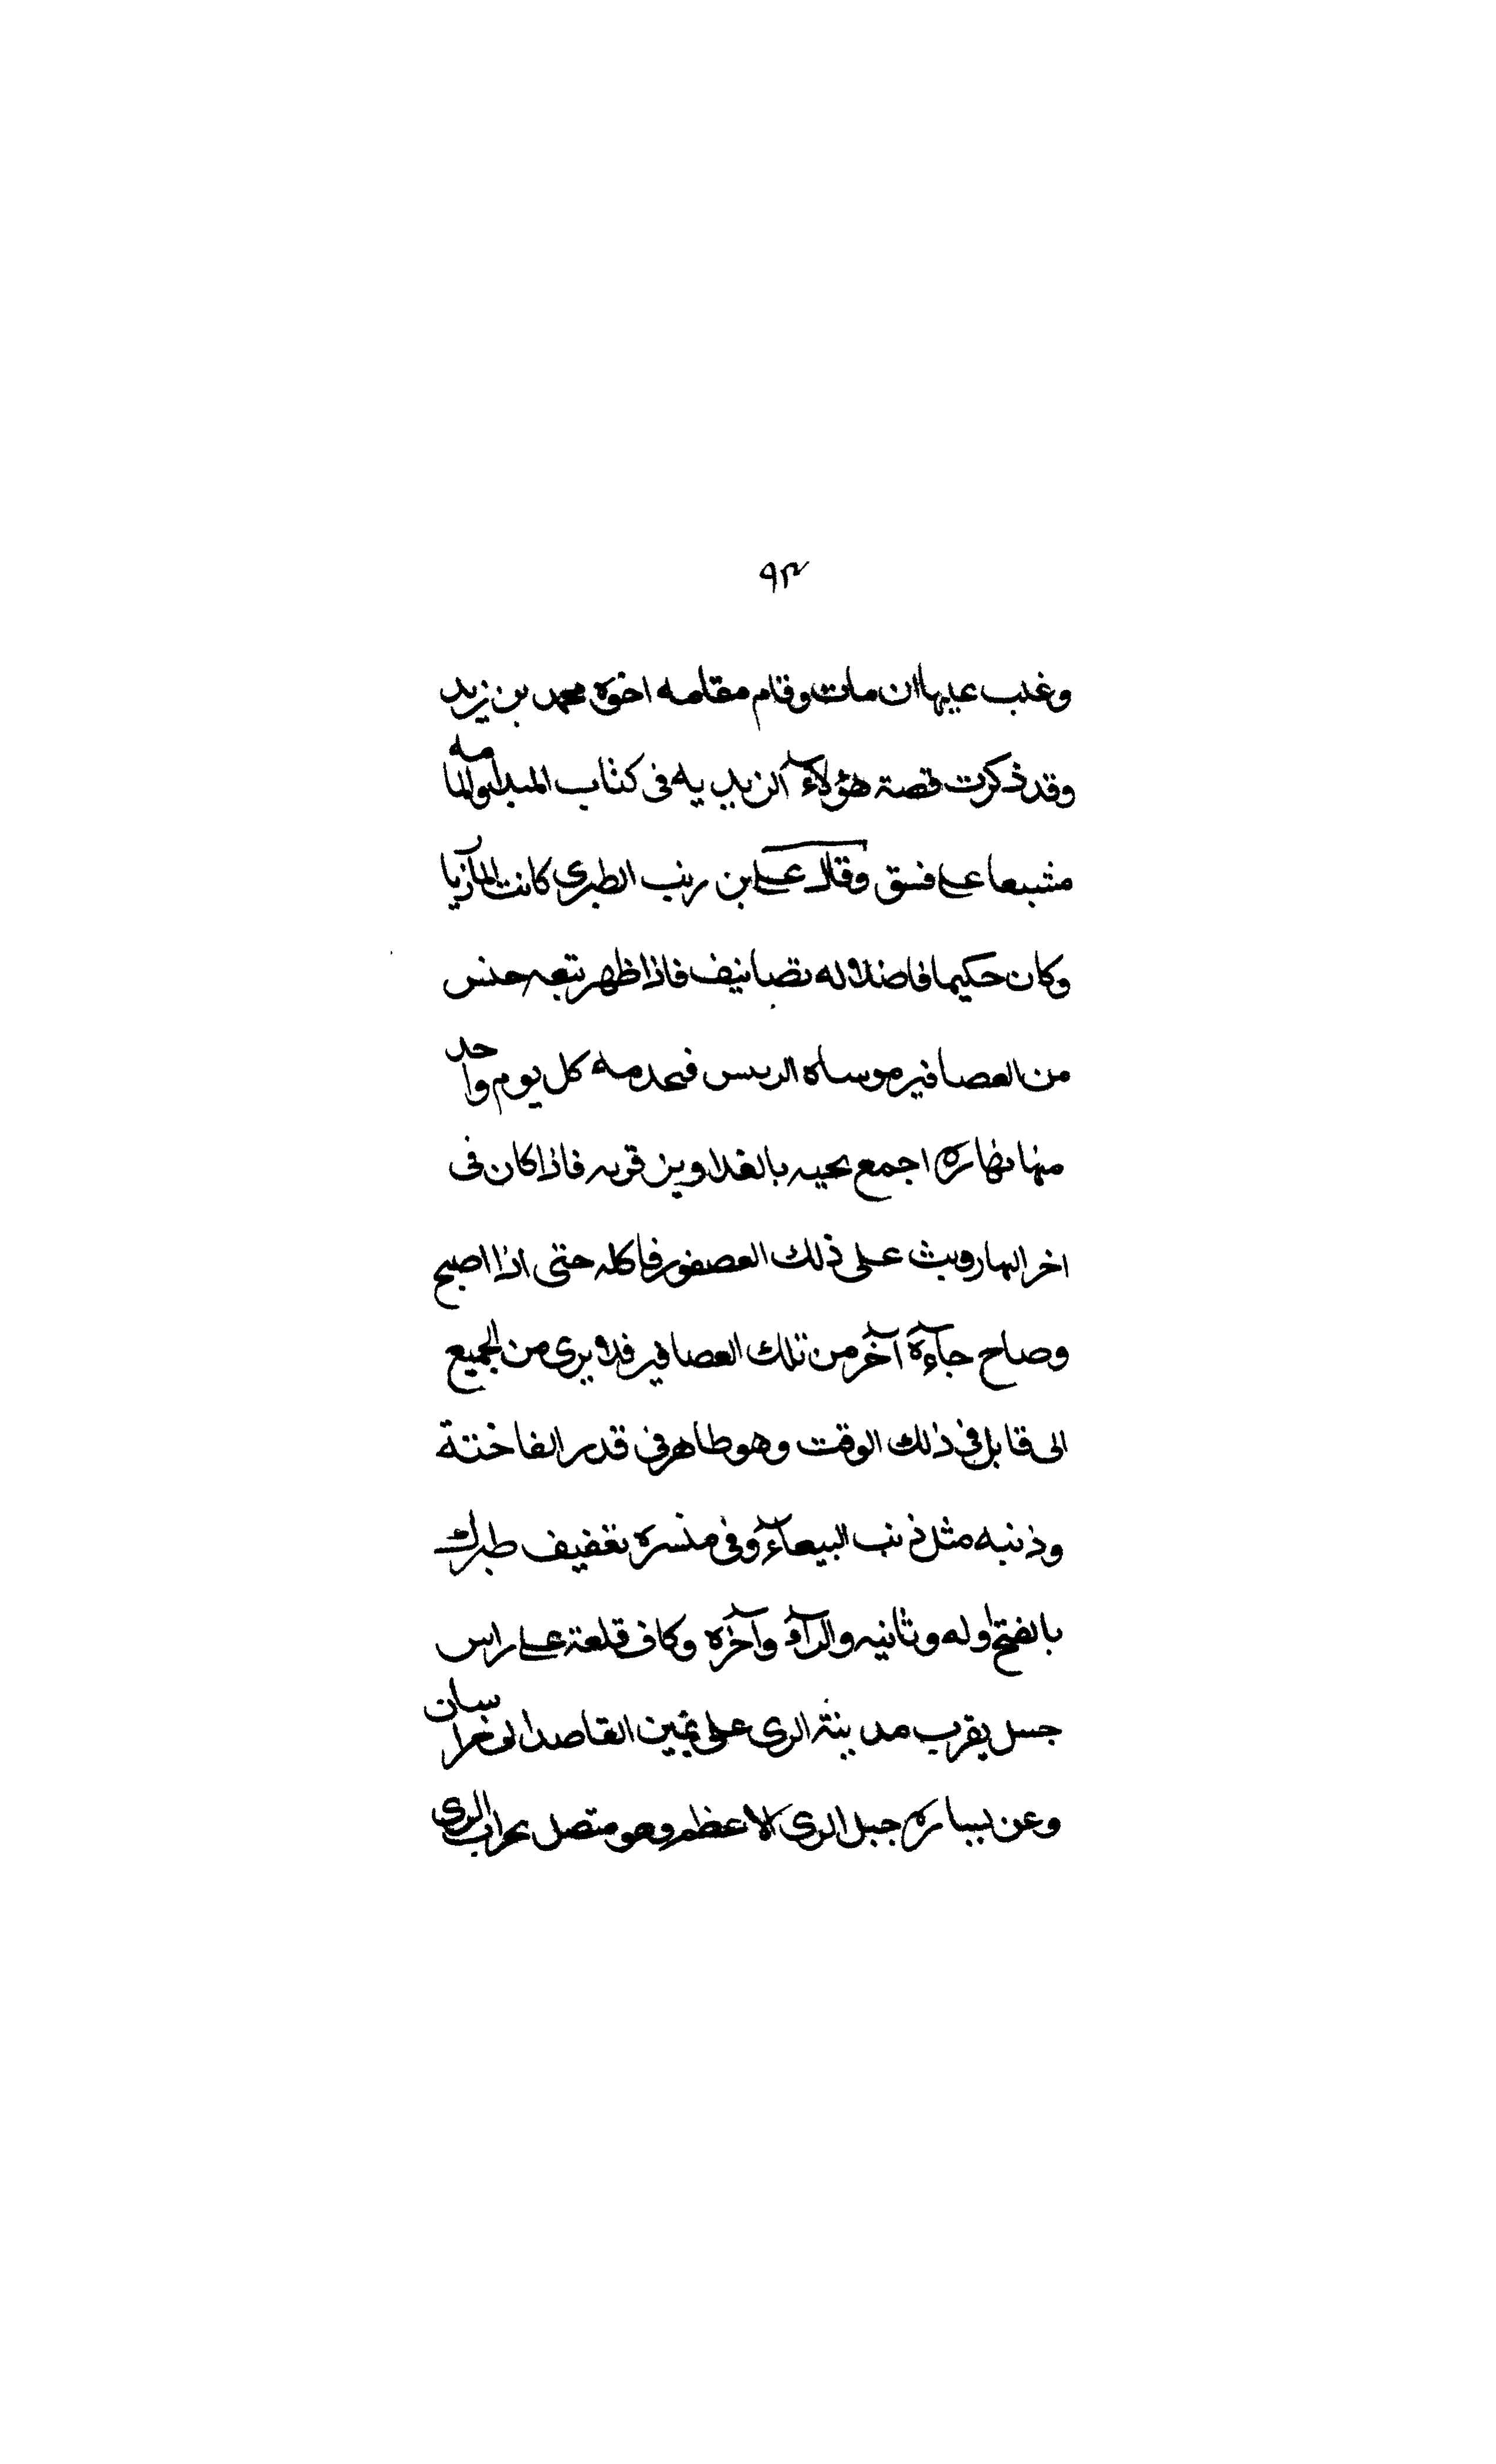 ٩٣
وغلب عليها ان مات وقام مقامه اخوه محمد بن زيد
وقد ذكرت قصة هؤلآء الزيديه فى كتاب المبدا والمامه
مشبعا على فسق وقال على بن رنب الطبرى كانت المآزيا
وكان حكيما فاضلا له تصانيف فاذا ظهر تتبعه جنس
من العصافير موساه الريس فيخدمه كل يوم واحد
منها نهاره اجمع يحيه بالغدا ويزقوبه فاذا كان فى
اخر النهار وبث على ذلك العصفور فاكله حتى اذا اصبح
وصاح جآءه آخر من تلك العصافير فلا يرى من الجميع
الى قابل فى ذلك الوقت وهو طاهر فى قدر الفاختة
وذنبه مثل ذنب الببغآء وفى منسره تغفيف طبرك
بالفتح اوله وثانيه والرآء وآخره وكاف قلعة على راس
جبل بقرب مدينة الرى على يمين القاصد الى خراسان
وعن يساره جبل الرى الاعظم وهو متصل بخراب الرى